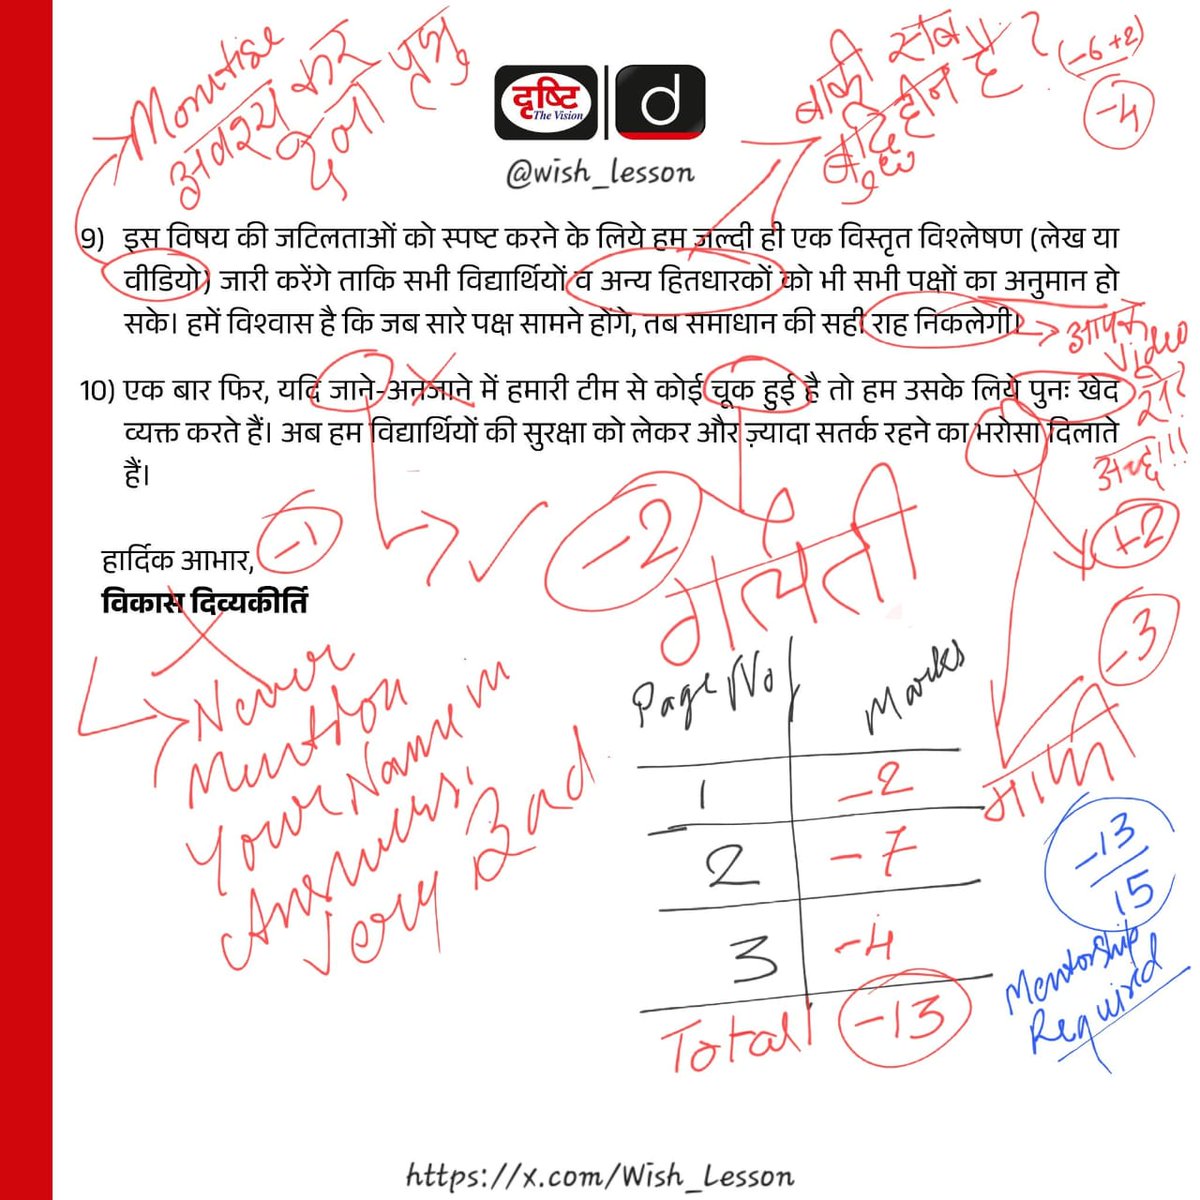 Monitise
अवश्य कर
देना प्रभु
बाकी सब
बुद्धिहीन है ?
(-6+2)
-4
दृष्टि
The Vision
d
@wish_lesson
9) इस विषय की जटिलताओं को स्पष्ट करने के लिये हम जल्दी ही एक विस्तृत विश्लेषण (लेख या
वीडियो) जारी करेंगे ताकि सभी विद्यार्थियों व अन्य हितधारकों को भी सभी पक्षों का अनुमान हो
सके। हमें विश्वास है कि जब सारे पक्ष सामने होंगे, तब समाधान की सही राह निकलेगी।
आपके
Video
से?
अच्छा!!!
10) एक बार फिर, यदि जाने-अनजाने में हमारी टीम से कोई चूक हुई है तो हम उसके लिये पुनः खेद
व्यक्त करते हैं। अब हम विद्यार्थियों की सुरक्षा को लेकर और ज़्यादा सतर्क रहने का भरोसा दिलाते
हैं।
-1
-2
गलती
+2
-3
माफी
हार्दिक आभार,
विकास दिव्यकीर्ति
Never
Mention
Your Name in
Answers.
Very Bad
Page No Marks
1 -2
2 -7
3 -4
Total -13
-13
15
Mentorship
Required
https://x.com/Wish_Lesson